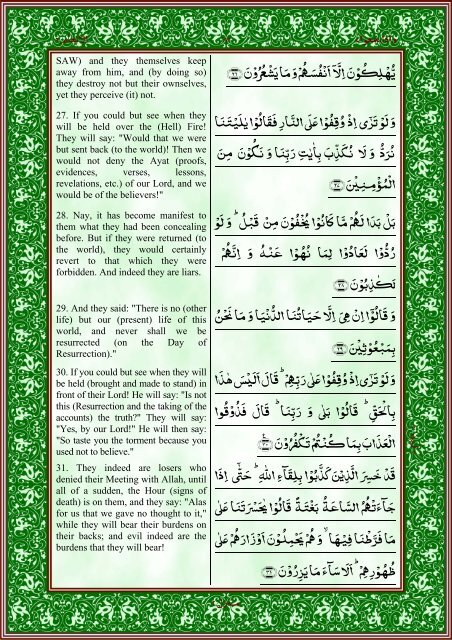 SAW) and they themselves keep
away from him, and (by doing so)
they destroy not but their ownselves,
yet they perceive (it) not.
27. If you could but see when they
will be held over the (Hell) Fire!
They will say: "Would that we were
but sent back (to the world)! Then we
would not deny the Ayat (proofs,
evidences, verses, lessons,
revelations, etc.) of our Lord, and we
would be of the believers!"
28. Nay, it has become manifest to
them what they had been concealing
before. But if they were returned (to
the world), they would certainly
revert to that which they were
forbidden. And indeed they are liars.
29. And they said: "There is no (other
life) but our (present) life of this
world, and never shall we be
resurrected (on the Day of
Resurrection)."
30. If you could but see when they will
be held (brought and made to stand) in
front of their Lord! He will say: "Is not
this (Resurrection and the taking of the
accounts) the truth?" They will say:
"Yes, by our Lord!" He will then say:
"So taste you the torment because you
used not to believe."
31. They indeed are losers who
denied their Meeting with Allah, until
all of a sudden, the Hour (signs of
death) is on them, and they say: "Alas
for us that we gave no thought to it,"
while they will bear their burdens on
their backs; and evil indeed are the
burdens that they will bear!
يُّهْلِكُوْنَ اِلَّاۤ اَنْفُسَهُمْ وَمَا يَشْعُرُوْنَ
وَلَوْ تَرٰٓى اِذْ وُقِفُوْا عَلَى النَّارِ فَقَالُوْا يٰلَيْتَنَا
نُرَدُّ وَلَا نُكَذِّبَ بِاٰيٰتِ رَبِّنَا وَنَكُوْنَ مِنَ
الْمُؤْمِنِيْنَ
بَلْ بَدَا لَهُمْ مَّا كَانُوْا يُخْفُوْنَ مِنْ قَبْلُ ؕ وَلَوْ
رُدُّوْا لَعَادُوْا لِمَا نُهُوْا عَنْهُ وَاِنَّهُمْ
لَكٰذِبُوْنَ ﴿۲۸﴾
وَقَالُوْۤا اِنْ هِىَ اِلَّا حَيَاتُنَا الدُّنْيَا وَمَا نَحْنُ
بِمَبْعُوْثِيْنَ ﴿۲۹﴾
وَلَوْ تَرٰٓى اِذْ وُقِفُوْا عَلٰى رَبِّهِمْ ؕ قَالَ اَلَيْسَ هٰذَا
بِالْحَقِّ ؕ قَالُوْا بَلٰى وَرَبِّنَا ؕ قَالَ فَذُوْقُوا
الْعَذَابَ بِمَا كُنْتُمْ تَكْفُرُوْنَ ﴿۳۰﴾
قَدْ خَسِرَ الَّذِيْنَ كَذَّبُوْا بِلِقَآءِ اللّٰهِ ؕ حَتّٰۤى اِذَا
جَآءَتْهُمُ السَّاعَةُ بَغْتَةً قَالُوْا يٰحَسْرَتَنَا عَلٰى
مَا فَرَّطْنَا فِيْهَا ۙ وَهُمْ يَحْمِلُوْنَ اَوْزَارَهُمْ عَلٰى
ظُهُوْرِهِمْ ؕ اَلَا سَآءَ مَا يَزِرُوْنَ ﴿۳۱﴾